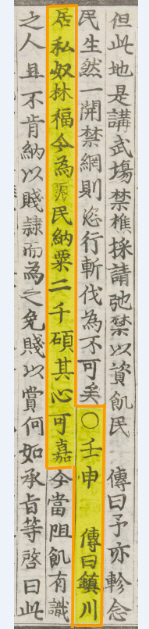 但此地是講武場禁樵採請弛禁以資飢民　傳曰予亦軫念
民生然一開禁網則恣行斬伐為不可矣○壬申　傳曰鎮川
居私奴林福今為賑民納粟二千碩其心可嘉今當阻飢有識
之人且不肯納以賤隷而為之免賤以賞何如承旨等啓曰此